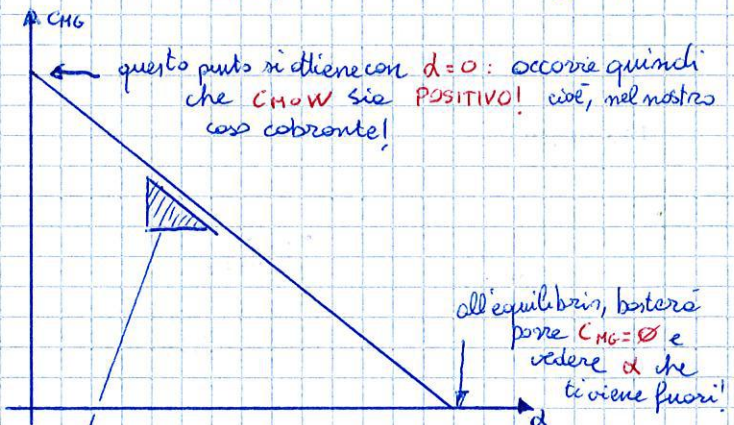 CMG
questo punto si ottiene con α=0: occorre quindi
che CMOW sia POSITIVO! cioè, nel nostro
caso cabrante!
all'equilibrio, basterà
porre CMG=Ø e
vedere α che
ti viene fuori!
α